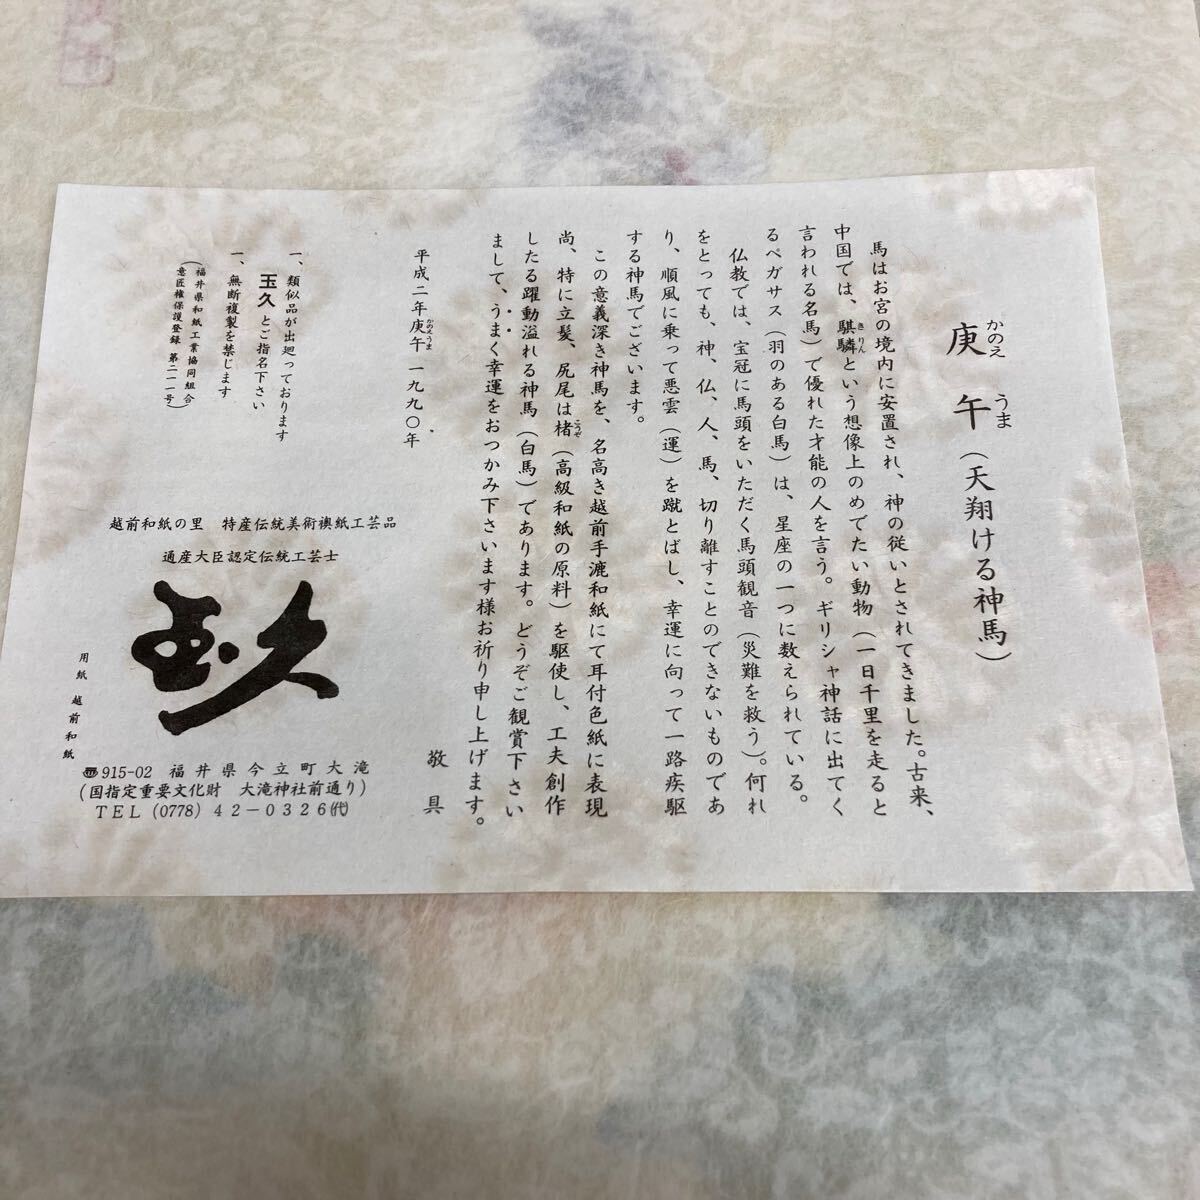 庚午（天翔ける神馬）
かのえ うま
馬はお宮の境内に安置され、神の従いとされてきました。古来、
中国では、騏驎という想像上のめでたい動物（一日千里を走ると
きりん
言われる名馬）で優れた才能の人を言う。ギリシャ神話に出てく
るペガサス（羽のある白馬）は、星座の一つに数えられている。
仏教では、宝冠に馬頭をいただく馬頭観音（災難を救う）。何れ
をとっても、神、仏、人、馬、切り離すことのできないものであ
り、順風に乗って悪雲（運）を蹴とばし、幸運に向って一路疾駆
する神馬でございます。
この意義深き神馬を、名高き越前手漉和紙にて耳付色紙に表現
尚、特に立髪、尻尾は楮（高級和紙の原料）を駆使し、工夫創作
こうぞ
したる躍動溢れる神馬（白馬）であります。どうぞご観賞下さい
まして、うまく幸運をおつかみ下さいます様お祈り申し上げます。
敬具
平成二年庚午 一九九〇年
かのえうま
一、類似品が出廻っております
玉久とご指名下さい
一、無断複製を禁じます
（福井県和紙工業協同組合
意匠権保護登録 第二一一号）
越前和紙の里 特産伝統美術襖紙工芸品
通産大臣認定伝統工芸士
玉久
用紙 越前和紙
☎915-02 福井県今立町大滝
(国指定重要文化財 大滝神社前通り)
TEL (0778) 42-0326㈹